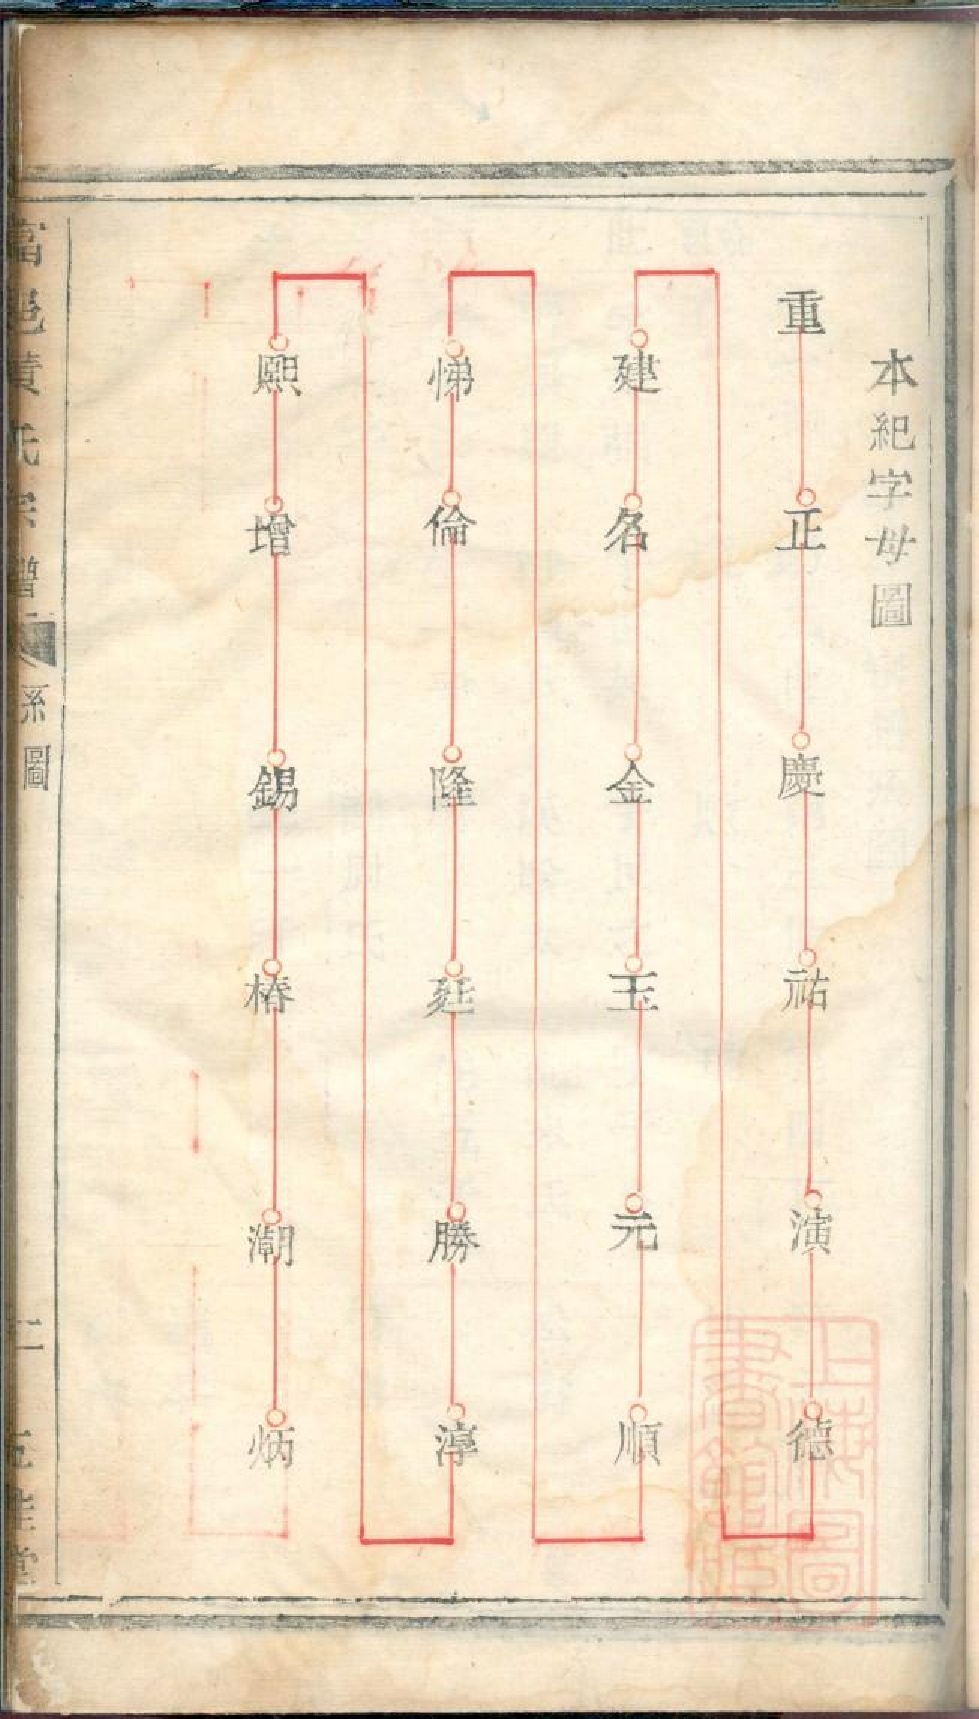 本紀字母圖
重正慶祐演德
建名金玉元順
悌倫隆廷勝淳
熙增錫椿潮炳
當邑黃氏宗譜
系圖
二
上海圖
書館藏